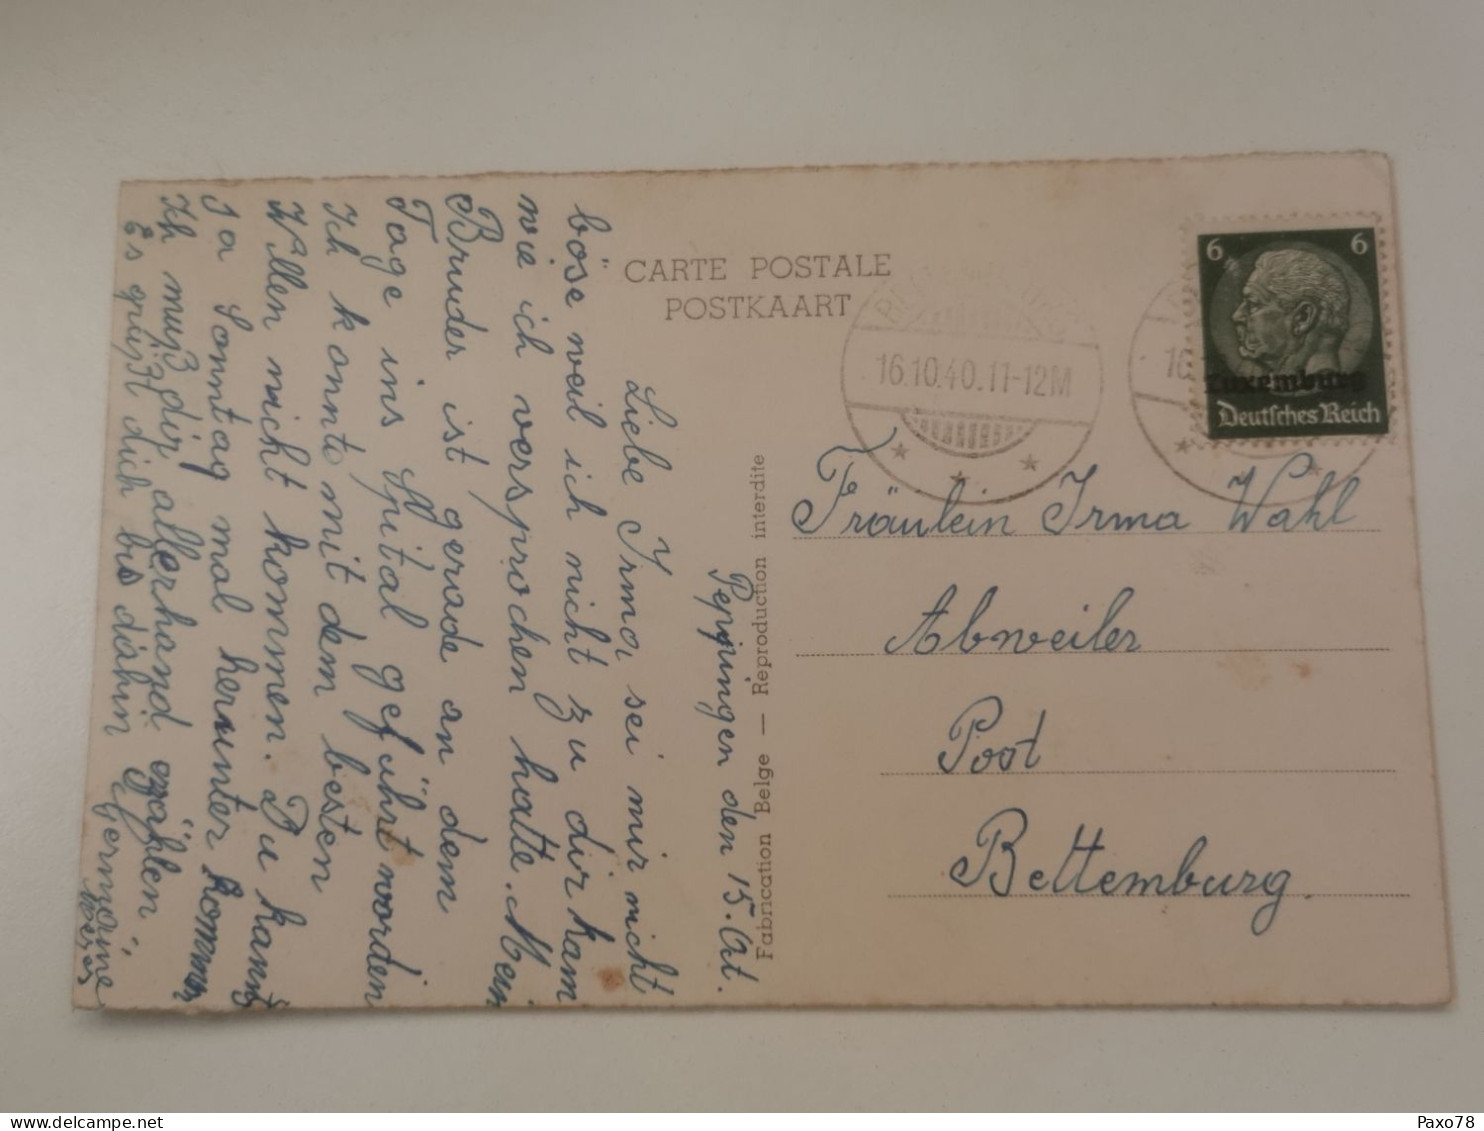 CARTE POSTALE
POSTKAART
16.10.40.11-12M
16
6 6
Luxemburg
Deutsches Reich
Fräulein Irma Wahl
Abweiler
Post
Bettemburg
Fabrication Belge — Reproduction interdite
Pepingen den 15. Okt.
Liebe Irma sei mir nicht
böse weil ich nicht zu dir kam
wie ich versprochen hatte. Mein
Bruder ist gerade an dem
Tage ins Spital geführt worden
Ich konnte mit dem besten
Willen nicht kommen. Du kannst
ja Sonntag mal herunter kommen
Ich muß dir allerhand erzählen.
Es grüßt dich bis dahin Germaine
Paxo78